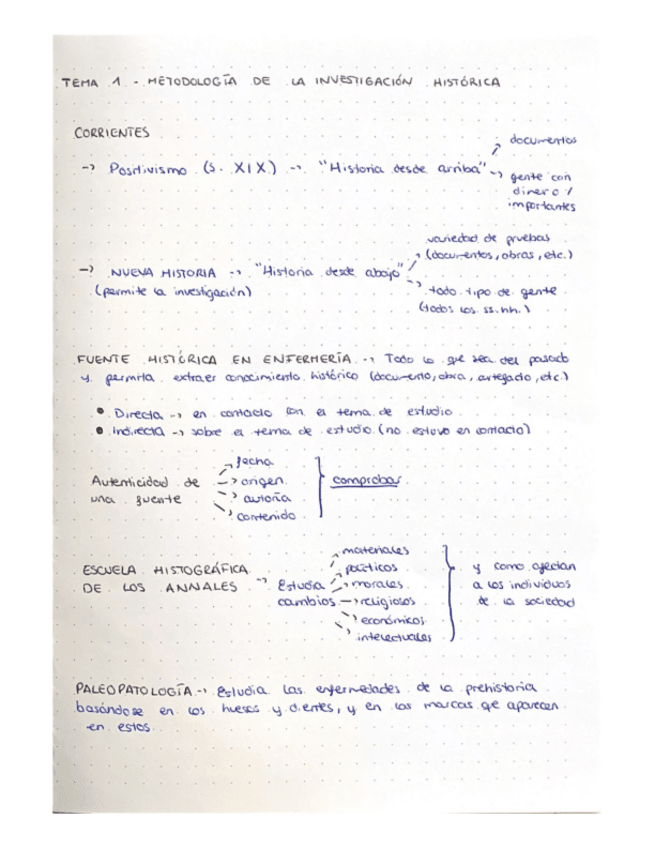 TEMA 1 - METODOLOGÍA DE LA INVESTIGACIÓN HISTÓRICA
CORRIENTES
-> Positivismo (S. XIX) -> "Historia desde arriba"
documentos
gente con
dinero /
importantes
-> NUEVA HISTORIA -> "Historia desde abajo"
(permite la investigación)
variedad de pruebas
(documentos, obras, etc.)
todo tipo de gente
(todos los ss.hh.)
FUENTE HISTÓRICA EN ENFERMERÍA -> Todo lo que sea del pasado
y permita extraer conocimiento histórico (documento, obra, artefacto, etc.)
• Directa -> en contacto con el tema de estudio
• Indirecta -> sobre el tema de estudio (no estuvo en contacto)
Autenticidad de
una fuente
-> fecha
-> origen
-> autoría
-> contenido
comprobar
ESCUELA HISTOGRÁFICA
DE LOS ANNALES ->
Estudia
cambios
materiales
políticos
morales
religiosos
económicos
intelectuales
y como afectan
a los individuos
de la sociedad
PALEOPATOLOGÍA -> Estudia las enfermedades de la prehistoria
basándose en los huesos y dientes, y en las marcas que aparecen
en estos.